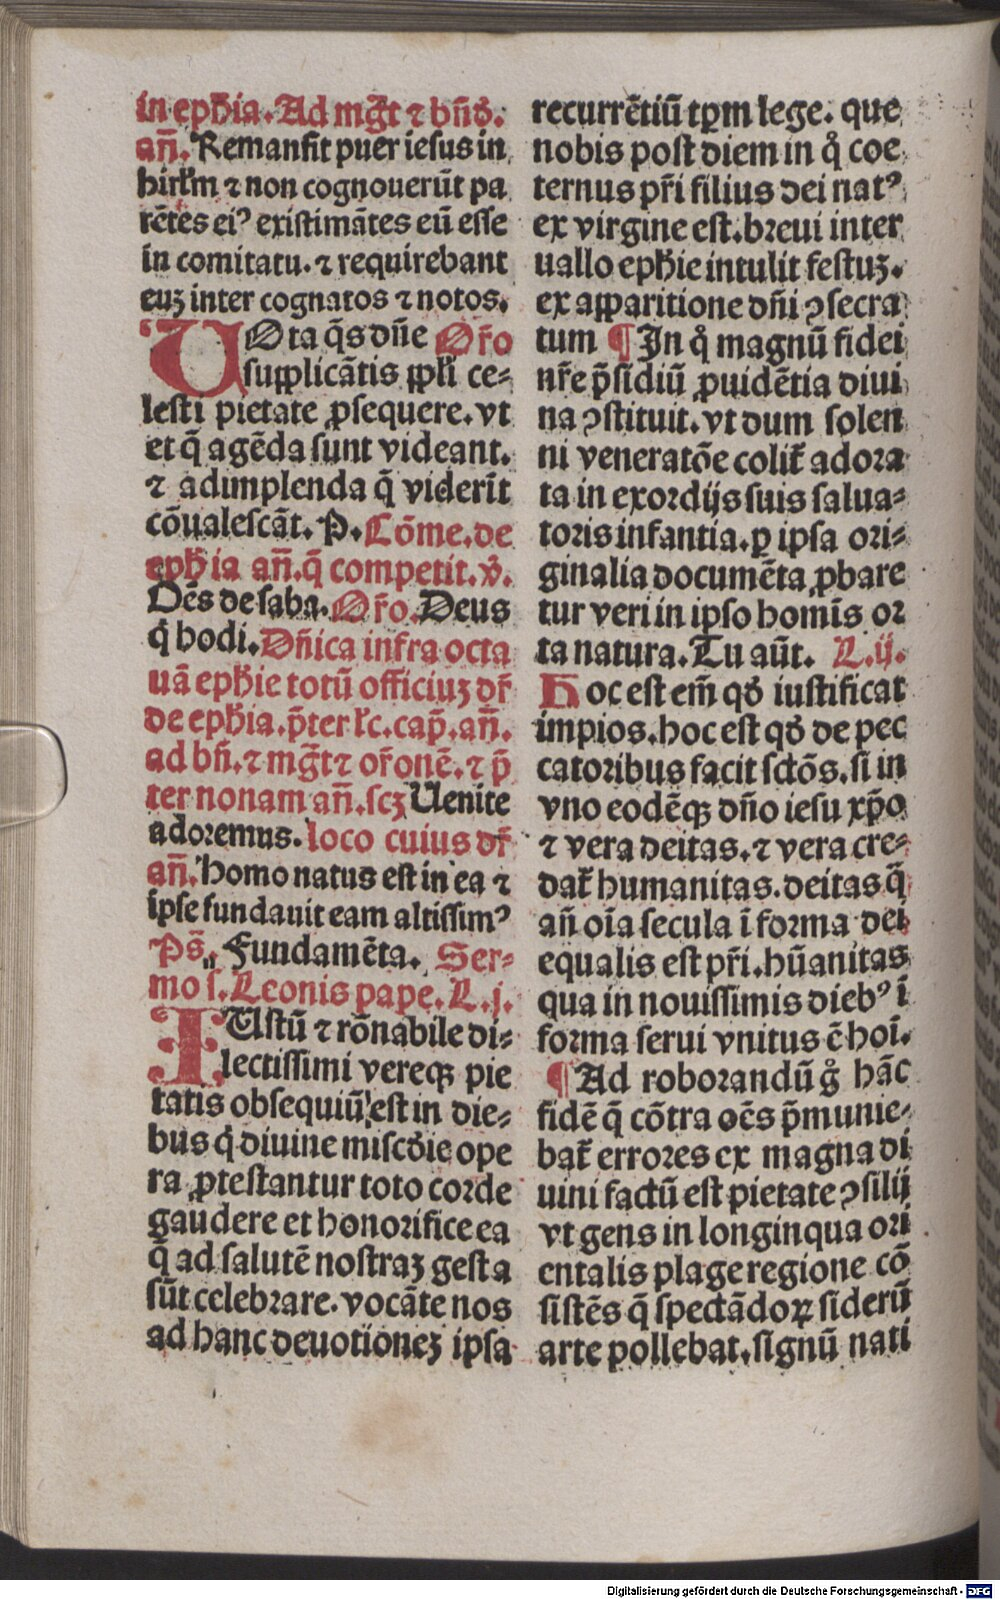 in epħia. Ad mg̃t ⁊ bñd̛.
añ. Remansit puer iesus in
hirl̃m ⁊ non cognouerũt pa
rẽtes eiꝰ existimãtes eũ esse
in comitatu. ⁊ requirebant
euȝ inter cognatos ⁊ notos.
VOta q̃s dñe Or̃o
supplicãtis ppl̃i ce⸗
lesti pietate ꝓsequere. vt
et q̃ agẽda sunt videant.
⁊ adimplenda q̃ viderĩt
cõualescãt. P. Cõme. de
epħia añ. q̃ competit. v̛.
Oẽs de saba. Or̃o. Deus
q̛ hodi. Dñica infra octa
uã epħie totũ officiuȝ dr̃
de epħia. p̃ter lc̃. cap̃. añ.
ad bñ. ⁊ mg̃t ⁊ or̃onẽ. ⁊ p̃
ter nonam añ. scȝ Uenite
adoremus. loco cuius dr̃
añ. Homo natus est in ea ⁊
ipse fundauit eam altissimꝰ
Ps̃. Fundamẽta. Ser⸗
mo s. Leonis pape. L. j.
IUstũ ⁊ rõnabile di⸗
lectissimi vereqꝫ pie
tatis obsequiũ est in die⸗
bus q̛ diuine misc̃die ope
ra ꝓtestantur toto corde
gaudere et honorifice ea
q̃ ad salutẽ nostraȝ gesta
sũt celebrare. vocãte nos
ad hanc deuotioneȝ ipsa
recurrẽtiũ tꝑm lege. que
nobis post diem in q̊ coe
ternus pr̃i filius dei natꝰ
ex virgine est. breui inter
uallo epħie intulit festuȝ.
ex apparitione dñi ꝯsecra
tum ¶ In q̊ magnũ fidei
nr̃e p̃sidiũ ꝓuidẽtia diui
na ꝯstituit. vt dum solen
ni veneratõe colit̃ adora
ta in exordijs suis salua⸗
toris infantia. ꝑ ipsa ori⸗
ginalia documẽta ꝓbare
tur veri in ipso homĩs or
ta natura. Tu aũt. L. ij.
Hoc est em̃ qd̛ iustificat
impios. hoc est qd̛ de pec
catoribus facit sctõs. si in
vno eodẽqꝫ dño iesu xp̃o
⁊ vera deitas. ⁊ vera cre⸗
dat̃ humanitas. deitas q̃
añ oĩa secula ĩ forma dei
equalis est pr̃i. hũanitas
qua in nouissimis diebꝰ ĩ
forma serui vnitus ẽ hoĩ.
¶ Ad roborandũ g̊ hãc
fidẽ q̃ cõtra oẽs p̃munie⸗
bat̃ errores ex magna di
uini factũ est pietate ꝯsilij
vt gens in longinqua ori
entalis plage regione cõ
sistẽs q̃ spectãdoꝝ siderũ
arte pollebat. signũ nati
Digitalisierung gefördert durch die Deutsche Forschungsgemeinschaft - DFG